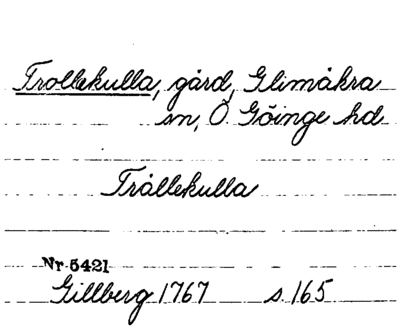 Trollekulla, gård, Glimåkra
sn, Ö. Göinge hd
Trållekulla
Nr 5421
Gillberg 1767 s. 165